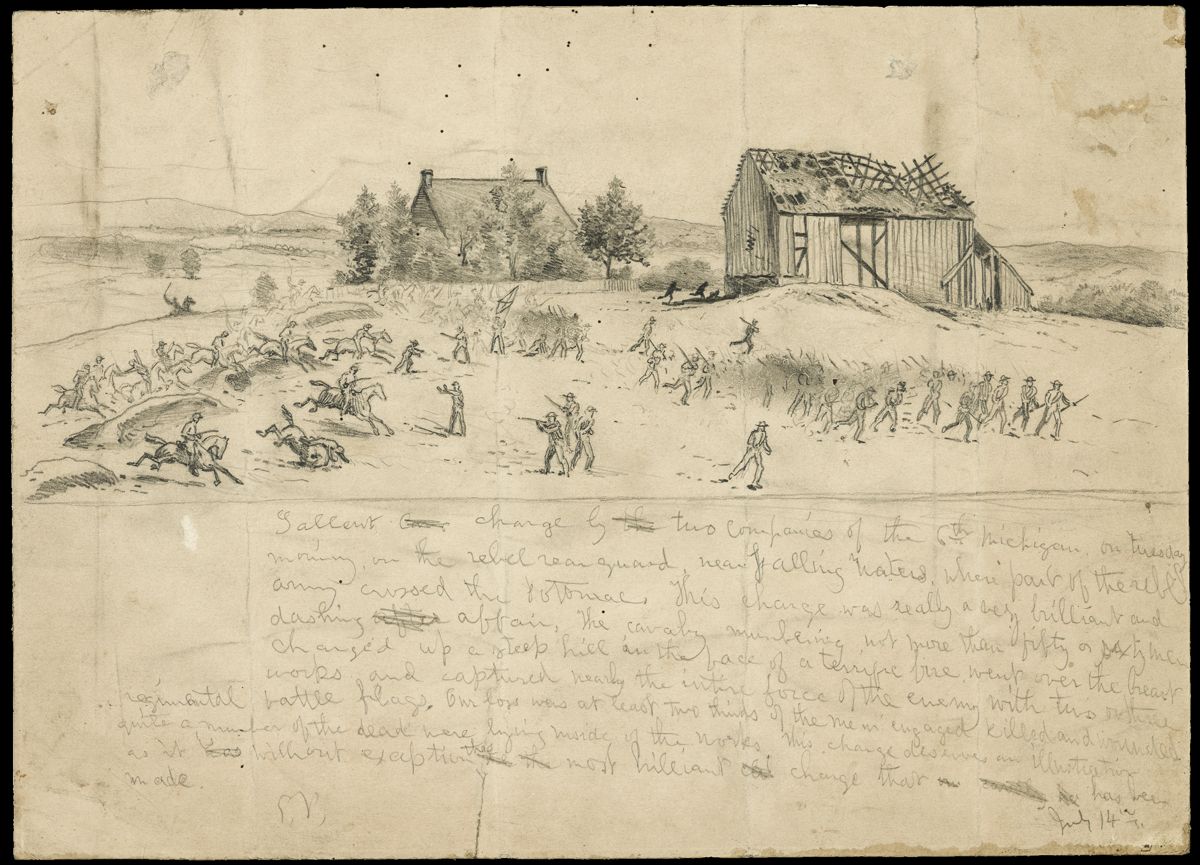 Gallent charge by two companies of the 6th Michigan, on tuesday
morning, on the rebel rear guard, near Falling Waters, where part of the rebel
army crossed the Potomac. This charge was really a very brilliant and
dashing affair, The cavalry numbering not more than fifty or sixty men
charged up a steep hill in the face of a terrific fire went over the breast
works and captured nearly the entire force of the enemy with two or three
regimental battle flags. Our loss was at least two thirds of the men engaged killed and wounded
quite a number of the dead were lying inside of the works. This charge deserves an illustration
as it without exception the most brilliant charge that has been
made.
July 14th